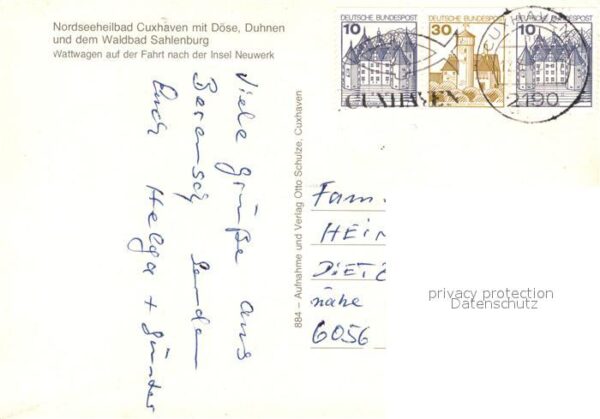 Nordseeheilbad Cuxhaven mit Döse, Duhnen
und dem Waldbad Sahlenburg
Wattwagen auf der Fahrt nach der Insel Neuwerk
DEUTSCHE BUNDESPOST
10
DEUTSCHE BUNDESPOST
30
DEUTSCHE BUNDESPOST
10
CUXHAVEN
CUXHAVEN
2190
Viele Grüße aus
Berensch senden
Euch Helga + Günter
884 – Aufnahme und Verlag Otto Schulze, Cuxhaven
Fam.
HEIN
DIETZ
nähe
6056
privacy protection
Datenschutz